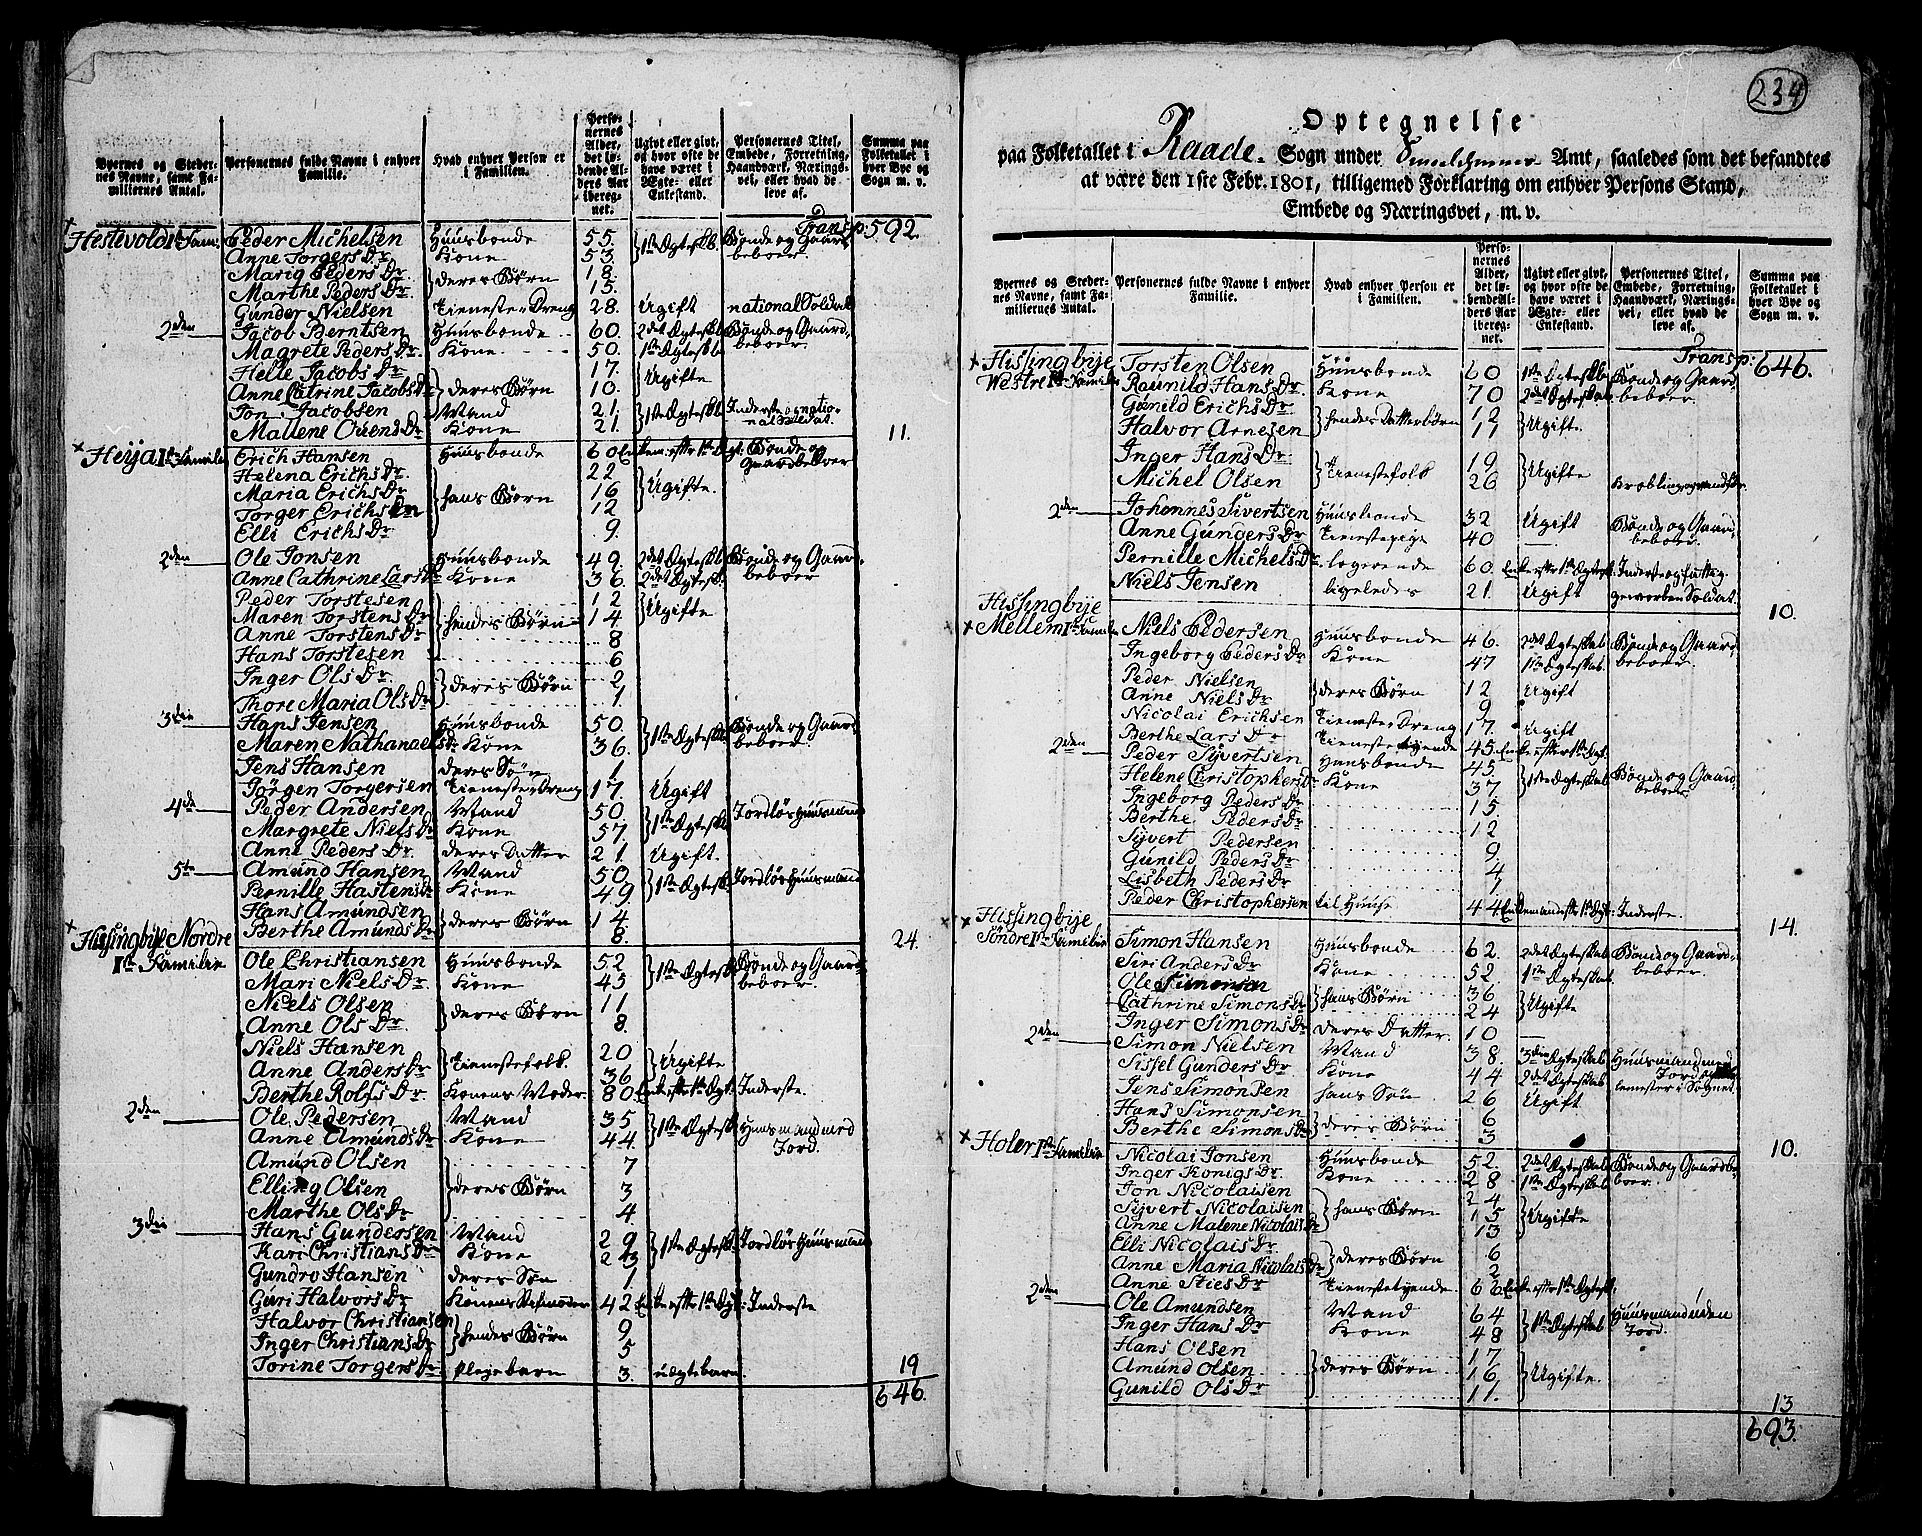 Byernes og Steder-nes Navne, samt Fa-miliernes Antal. | Personernes fulde Navne i enhver Familie. | Hvad enhver Person er i Familien. | Perso-nernes Alder, det lø-bende Al-ders Aar iberegnet. | Ugivt eller givt, og hvor ofte de have været i Ægte- eller Enkestand. | Personernes Titel, Embede, Forretning, Haandværk, Nærings-vei, eller hvad de leve af. | Summa paa Folketallet i hver Bye og Sogn m. v.
Transp: 592
Hestevold 1ste Fam: Peder Michelsen Huusbonde 55. 1ste Ægteskb. Bonde og Gaard-
Anne Torgers Dr Kone 53. beboer
Marig Peders Dr. deres Børn 18.
Marthe Peders Dr. 15.
Gunder Nielsen Tieneste Dreng 28. Ugift national Soldat
2den Jacob Berntsen Huusbonde 60. 2det Ægteskb Bonde og Gaard-
Magrete Peders Dr Kone 50. 1ste Ægteskb beboer
Helle Jacobs Dr 17. Ugifte
Anne Catrine Jacobs Dr deres Børn 10.
Jon Jacobsen Mand 21. 1ste Ægteskb Inderste og natio-
Mallene Ouens Dr Kone 21. nal Soldat. 11.
Heija 1ste Familie Erich Hansen Huusbonde 60 Enkem. efter 1ste Ægt: Bonde og
Helena Erichs Dr. 22 Gaardbeboer
Maria Erichs Dr hans Børn 16 Ugifte.
Torger Erichsen 12
Elli Erichs Dr 9.
2den Ole Jonsen Huusbonde 49. 2det Ægteskb Bonde og Gaard-
Anne Cathrine Lars Dr Kone 36. 2det Ægteskb. beboer
Peder Torstesen 12 Ugifte
Maren Torstens Dr hendes Børn 14
Anne Torstens Dr 8
Hans Torstesen 6
Inger Ols Dr. deres Børn 2
Thore Maria Ols Dr 1.
3die Hans Jensen Huusbonde 50. 1ste Ægteskb Bonde og Gaard-
Maren Nathanaels Dr Kone 36. beboer
Jens Hansen deres Søn 1
Jørgen Torgersen Tieneste Dreng 17. Ugift
4de Peder Andersen Mand 50. 1ste Ægteskb Jordløs Huusmand
Margrete Niels Dr Kone 57.
Anne Peders Dr. deres Datter 21. Ugift.
5te Amund Hansen Mand 50. 1ste Ægteskb Jordløs Huusmand
Pernille Hastens Dr Kone 49.
Hans Amundsen deres Børn 14
Berthe Amunds Dr 8. 24.
Hissingbye Nordre
1ste Familie Ole Christiansen Huusbonde 52 1ste Ægteskb Bonde og Gaard-
Mari Niels Dr. Kone 45 beboer.
Niels Olsen deres Børn 11
Anne Ols Dr 8.
Niels Hansen Tienestefolk. 20 Ugifte
Anne Anders Dr 36
Berthe Rolfs Dr Konens Moder 80. Enke efter 1ste Ægt: Inderste.
2den Ole Pedersen Mand 35 1ste Ægteskb Huusmand med
Anne Amunds Dr Kone 44. Jord.
Amund Olsen 7
Elling Olsen deres Børn 3
Marthe Ols Dr 4.
3die Hans Gundersen Mand 29 1ste Ægteskb. Jordløs Huusmand
Kari Christians Dr Kone 23
Gundro Hansen deres Søn 1
Guri Halvors Dr Konens Stifmoder 42 Enke efter 1ste Ægt: Inderste
Halvor Christiansen hendes Børn 9
Inger Christians Dr 5
Torine Torgers Dr Pleiebarn 3. uægtebarn. 19
646.
234
Optegnelse
paa Folketallet i Raade Sogn under Amt, saaledes som det befandtes
at være den 1ste Febr. 1801, tilligemed Forklaring om enhver Persons Stand,
Embede og Næringsvei, m. v.
Byernes og Steder-nes Navne, samt Fa-miliernes Antal. | Personernes fulde Navne i enhver Familie. | Hvad enhver Person er i Familien. | Perso-nernes Alder, det lø-bende Al-ders Aar iberegnet. | Ugivt eller givt, og hvor ofte de have været i Ægte- eller Enkestand. | Personernes Titel, Embede, Forretning, Haandværk, Nærings-vei, eller hvad de leve af. | Summa paa Folketallet i hver Bye og Sogn m. v.
Transp: 646.
Hissingbye
Westre 1ste Familie Torsten Olsen Huusbonde 60 1ste Ægteskb Bonde og Gaard-
Raunild Hans Dr Kone 70 2det Ægteskab beboer.
Gunild Erichs Dr hendes Datterbørn 12 Ugift.
Halvor Arnesen 11
Inger Hans Dr Tienestefolk 19 Ugifte
Michel Olsen 26
2den Johannes Sivertsen Huusbonde 32 Ugift Bonde og Gaard-
Anne Gunders Dr Tienestepige 40 beboer.
Pernille Michels Dr logerende 60. Enke efter 1ste Ægtesk: Inderste og fattig.
Niels Jensen ligeledes 21. Ugift geworben Soldat. 10.
Hissingbye
Mellem 1ste Familie Niels Pedersen Huusbonde 46. 2det Ægteskab Bonde og Gaard-
Ingeborg Peders Dr Kone 47 1ste Ægteskab beboer.
Peder Nielsen deres Børn 12 Ugift
Anne Niels Dr 9
Nicolai Erichsen Tieneste Dreng 17. Ugift
Berthe Lars Dr Tienestetyende 45. Enke efter 1ste Ægt.
2den Peder Syvertsen Huusbonde 45. 1ste Ægteskab Bonde og Gaard-
Helene Christophers Dr Kone 37 beboer
Ingeborg Peders Dr 15.
Berthe Peders Dr 12
Syvert Pedersen 9.
Gunild Peders Dr 4
Lisbeth Peders Dr 1
Peder Christophersen til Huuse 44 Enkemand efter 1ste Ægt: Inderste. 14.
Hissingbye
Søndre 1ste Familie Simon Hansen Huusbonde 62. 2det Ægteskab Bonde og Gaard-
Siri Anders Dr Kone 52. 1ste Ægteskab. beboer.
Ole Simonsen hans Børn 36 Ugifte
Cathrine Simons Dr 24
Inger Simons Dr deres Datter 10
2den Simon Nielsen Mand 38. 3die Ægteskab Huusmand med
Sissel Gunders Dr Kone 44 2det Ægteskab Jord og
Jens Simonsen hans Søn 26 Ugift i Sognet.
Hans Simonsen deres Børn 6
Berthe Simons Dr 3 10.
Holer 1ste Familie Nicolai Jonsen Huusbonde 52. 2det Ægteskab Bonde og Gaardbe-
Inger Konigs Dr Kone 28 1ste Ægteskab. boer.
Jon Nicolaisen 24
Syvert Nicolaisen hans Børn 15 Ugifte
Anne Malene Nicolais Dr 13
Elli Nicolais Dr. deres Børn 6
Anne Maria Nicolais Dr 2
Anne Sties Dr Tienestetyende 66 Enke efter 1ste Ægtesk.
2den Ole Amundsen Mand 64 1ste Ægteskab Huusmand uden
Inger Hans Dr Kone 48 Jord.
Hans Olsen 17
Amund Olsen deres Børn 16 Ugifte.
Gunild Ols Dr 11. 13
693.